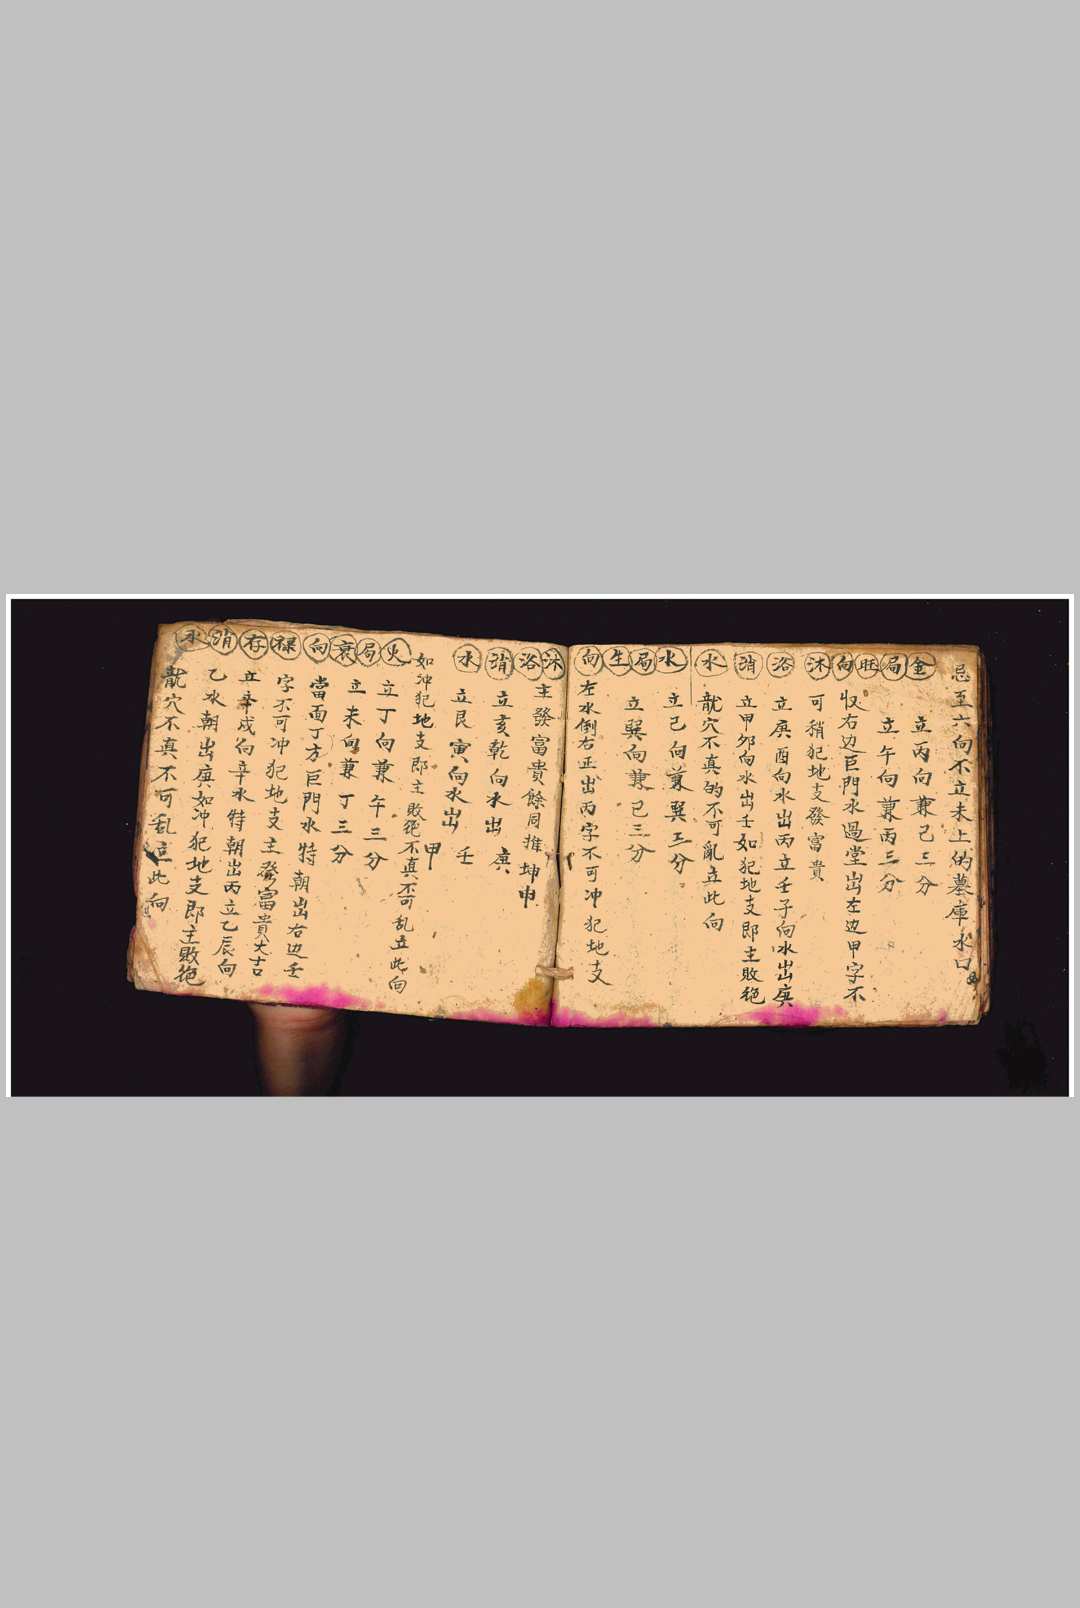 忌至六向不立未上的墓庫水口
金局旺向沐浴消水
立丙向兼巳三分
立午向兼丙三分
収右边巨門水過堂出左边甲字不
可稍犯地支發富貴
立庚酉向水出丙立壬子向水出庚
立甲夘向水出壬如犯地支即主敗絕
龍穴不真的不可亂立此向
水局生向沐浴消水
立巳向兼巽三分
立巽向兼巳三分
左水倒右正出丙字不可冲犯地支
主發富貴餘同推坤申
立亥乾向水出庚
立艮寅向水出壬
甲
如冲犯地支即主敗絕不真不可乱立此向
火局衰向禄存消水
立丁向兼午三分
立未向兼丁三分
當面丁方巨門水特朝出右边壬
字不可冲犯地支主發富貴大吉
立辛戌向辛水特朝出丙立乙辰向
乙水朝出庚如冲犯地支即主敗絕
龍穴不真不可乱立此向